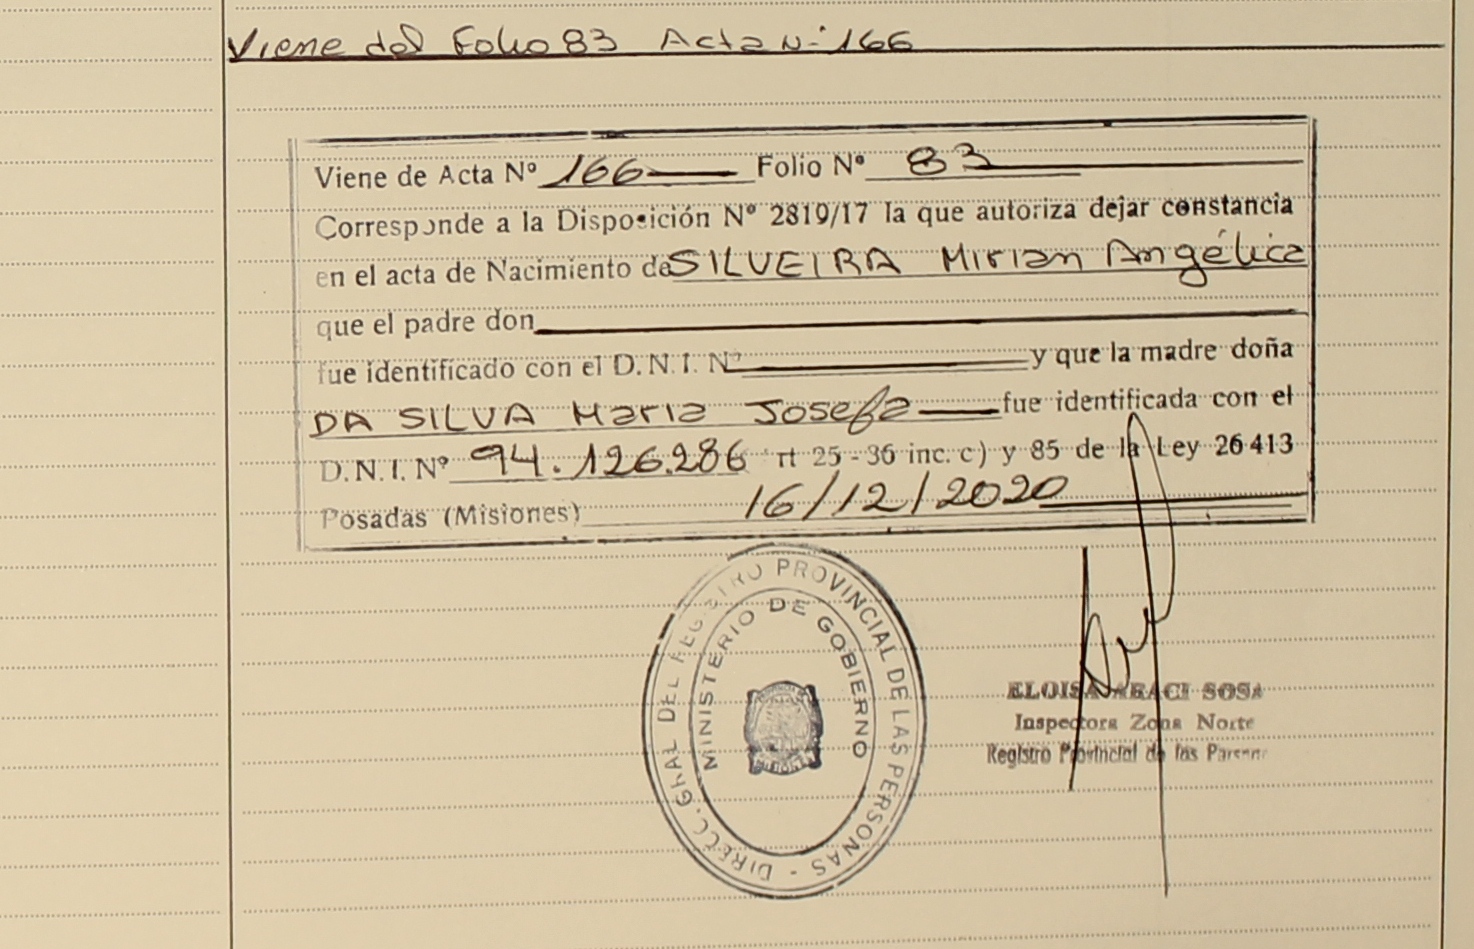 Viene del Folio 83 Acta N° 166
Viene de Acta Nº 166 Folio Nº 83
Corresponde a la Disposición Nº 2819/17 la que autoriza dejar constancia
en el acta de Nacimiento de SILVEIRA Mirian Angélica
que el padre don
fue identificado con el D.N.I. Nº y que la madre doña
DA SILVA Maria Josefa fue identificada con el
D.N.I. Nº 94.126.286 rt 25-36 inc. c) y 85 de la Ley 26413
Posadas (Misiones) 16/12/2020
DIRECC. GRAL DEL REGISTRO PROVINCIAL DE LAS PERSONAS -
MINISTERIO DE GOBIERNO
ELOISA ARACI SOSA
Inspectora Zona Norte
Registro Provincial de las Person